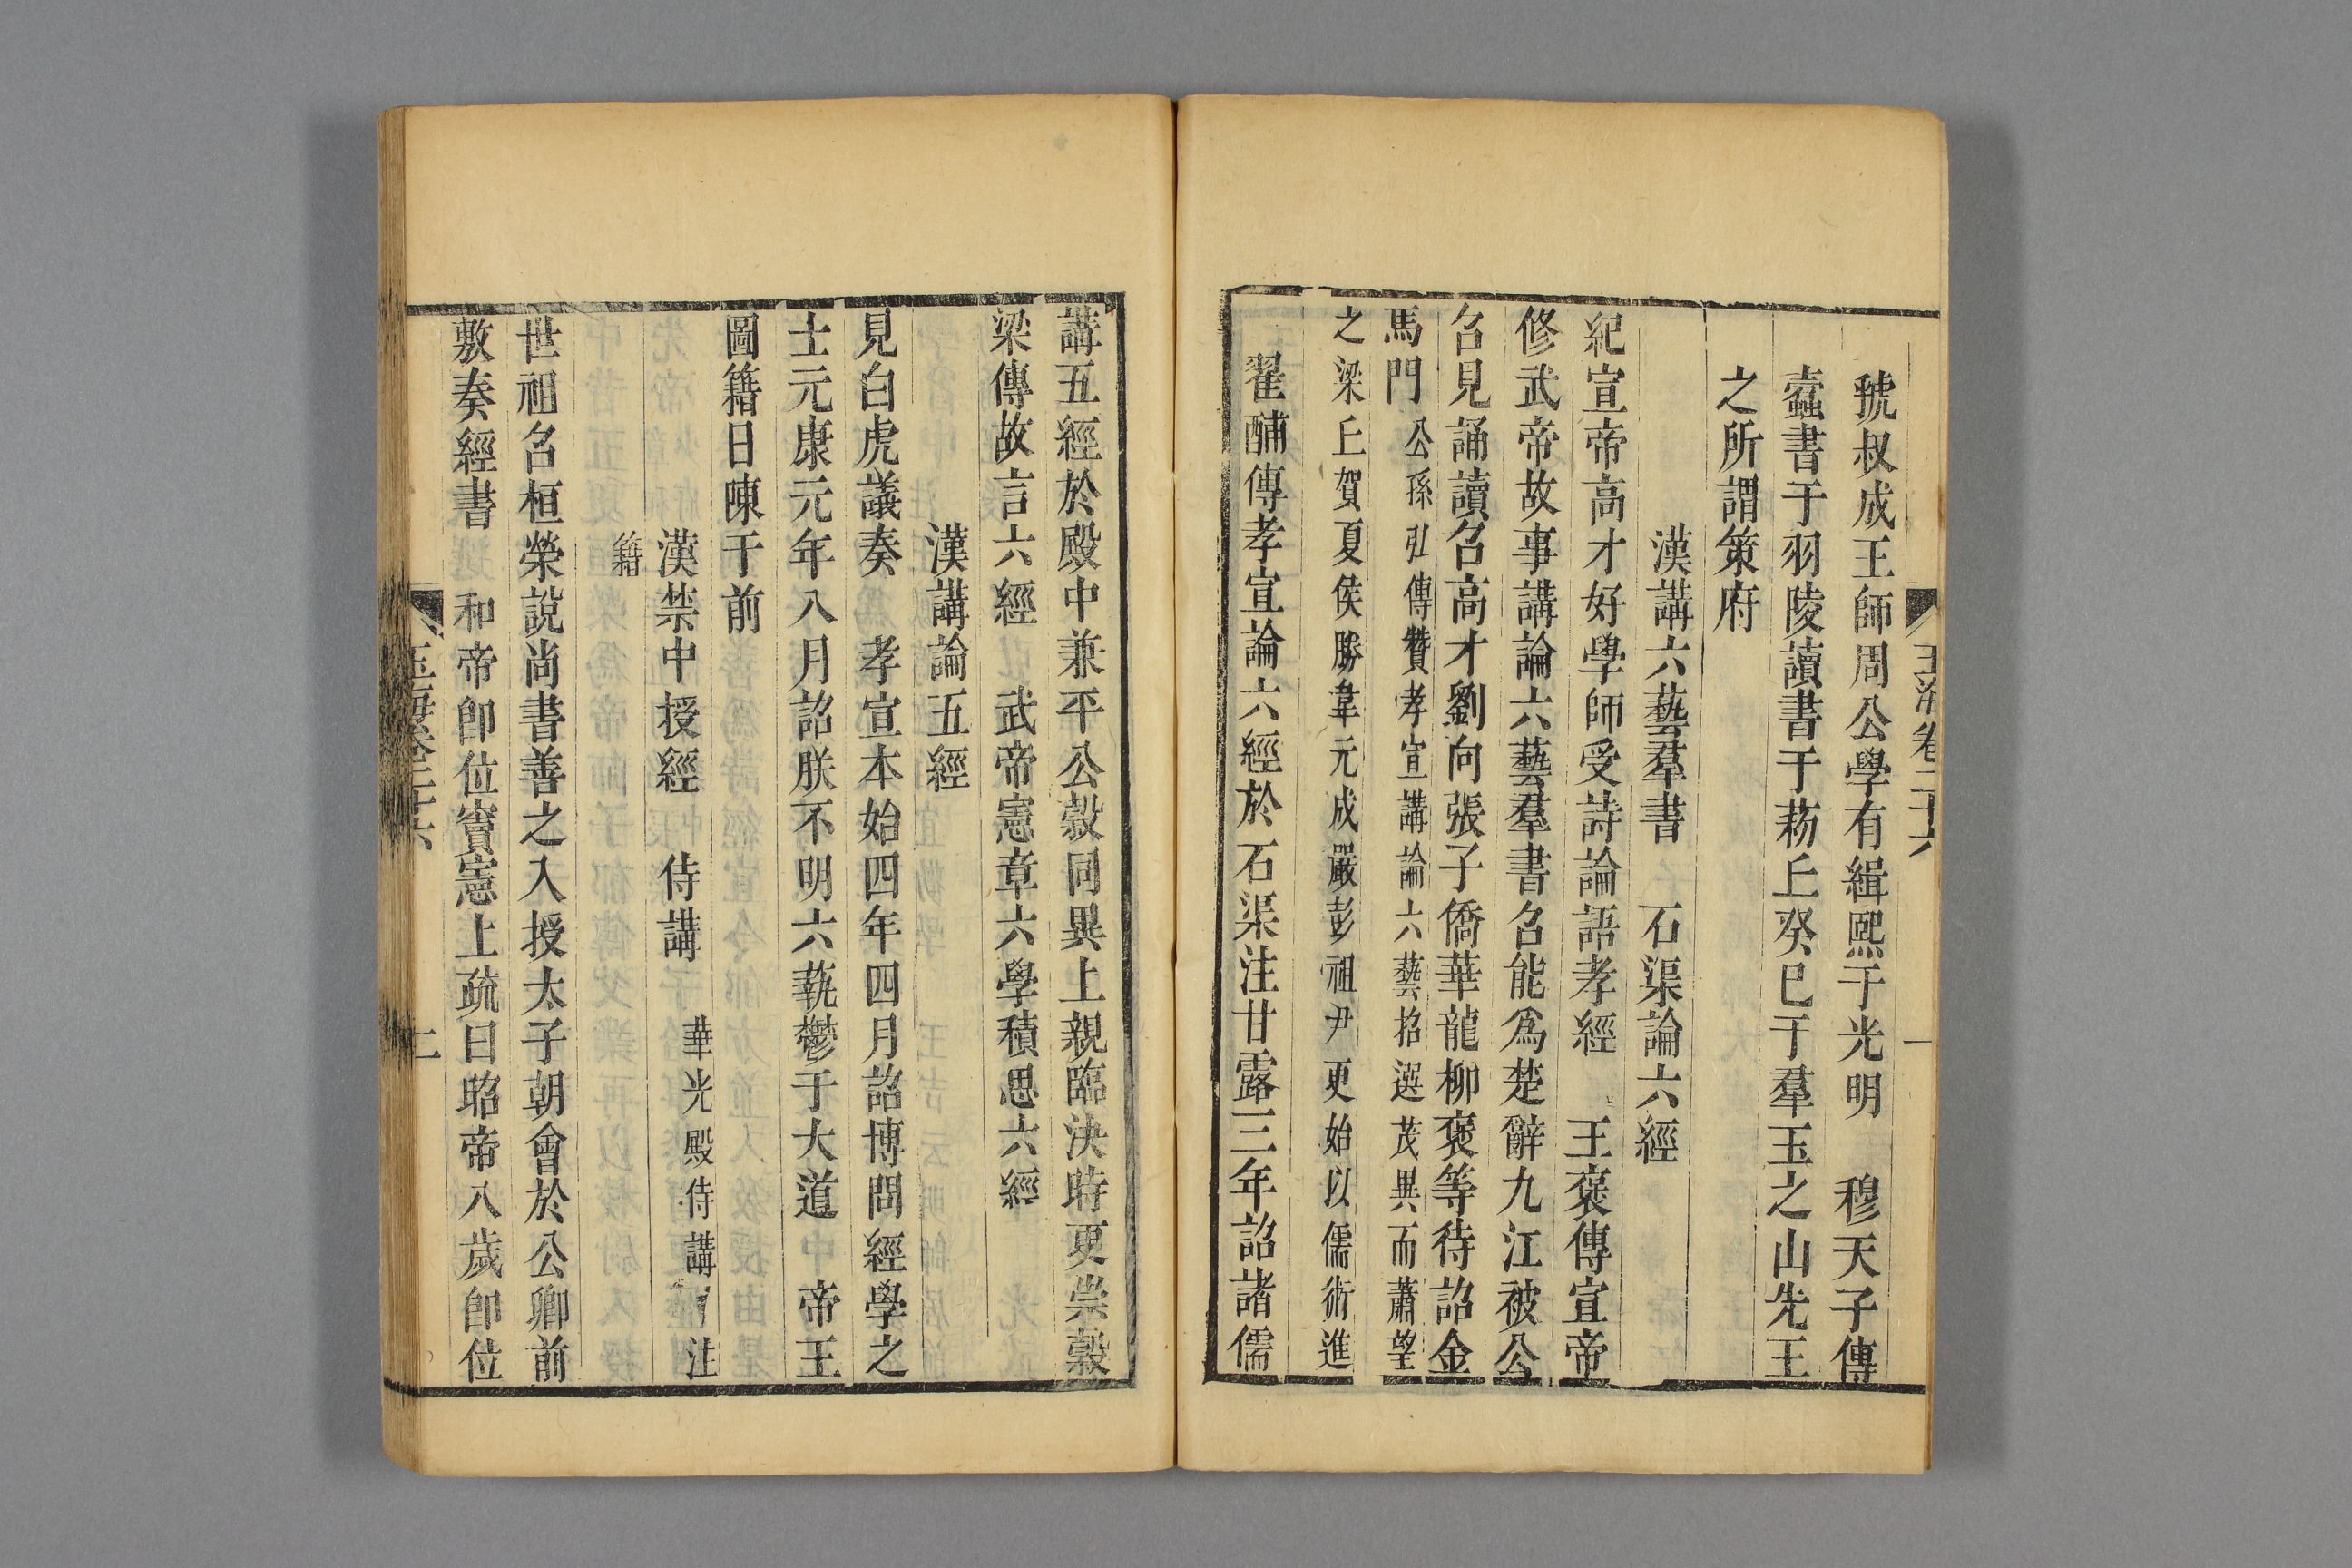 玉海卷二十六
一
虢叔成王師周公學有緝熙于光明　穆天子傳
蠹書于羽陵讀書于菞丘癸巳于羣玉之山先王
之所謂策府
漢講六藝羣書　石渠論六經
紀宣帝高才好學師受詩論語孝經　王褒傳宣帝
修武帝故事講論六藝羣書召能爲楚辭九江被公
召見誦讀召高才劉向張子僑華龍柳褒等待詔金
馬門公孫弘傳贊孝宣講論六藝招選茂異而蕭望
之梁丘賀夏侯勝韋元成嚴彭祖尹更始以儒術進
翟酺傳孝宣論六經於石渠注甘露三年詔諸儒
講五經於殿中兼平公穀同異上親臨決時更崇穀
梁傳故言六經　武帝憲章六學積思六經
漢講論五經
見白虎議奏　孝宣本始四年四月詔博問經學之
士元康元年八月詔朕不明六藝鬱于大道　帝王
圖籍日陳于前
漢禁中授經　侍講　華光殿侍講　注
籍
世祖召桓榮說尚書善之入授太子朝會於公卿前
敷奏經書　和帝卽位竇憲上疏曰昭帝八歲卽位
玉海卷二十六
二